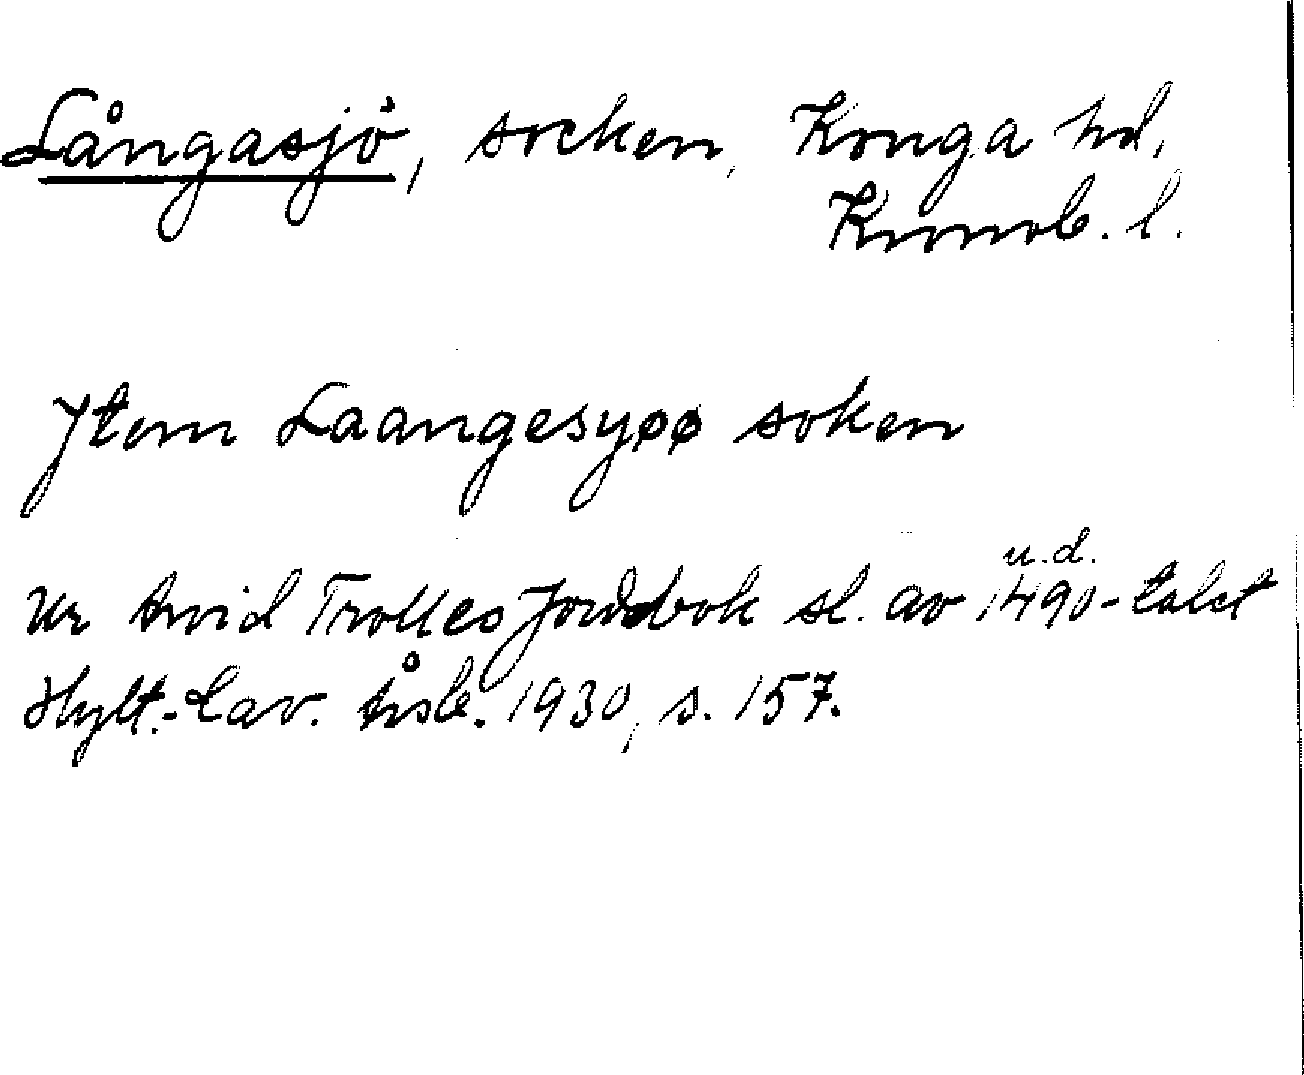 Långasjö, socken, Konga hd,
Kronob. l.
Jtem Laangesyøø soken
u.d.
Ur Arvid Trolles Jordbok sl. av 1490-talet
Hylt.-Cav. Årsb. 1930, s. 157.